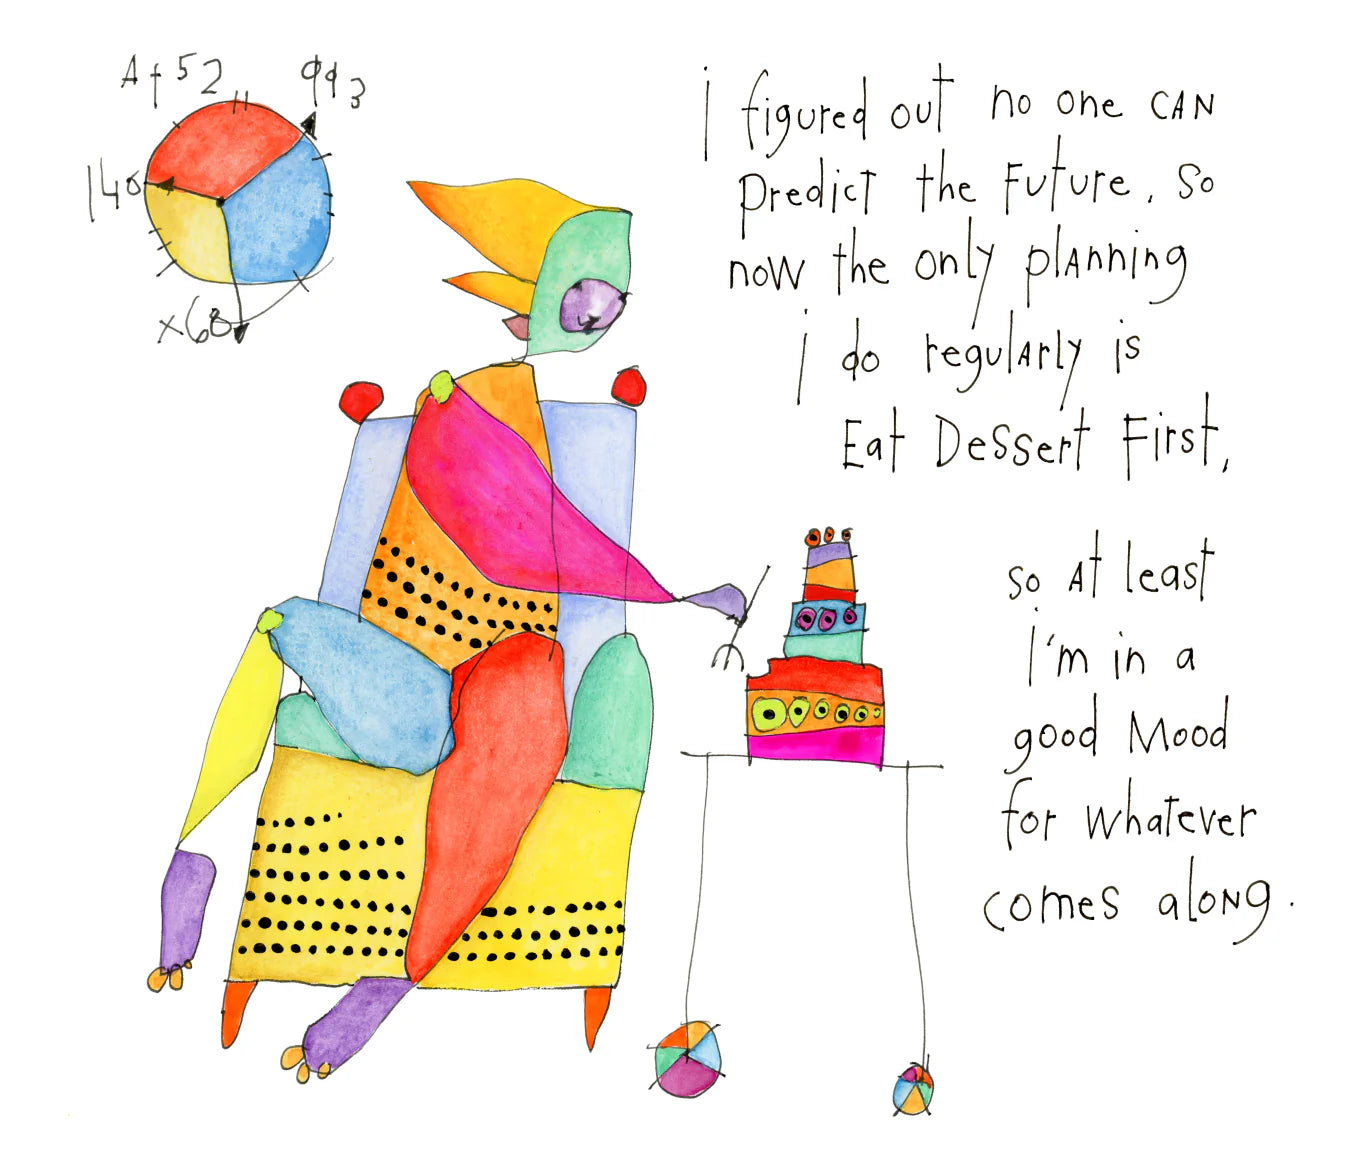 A+52
993
140
x68
i figured out no one CAN
Predict the Future, So
now the only plAnning
i do regulArly is
Eat Dessert First,
so At least
i'm in a
good Mood
for whatever
comes aloNg.